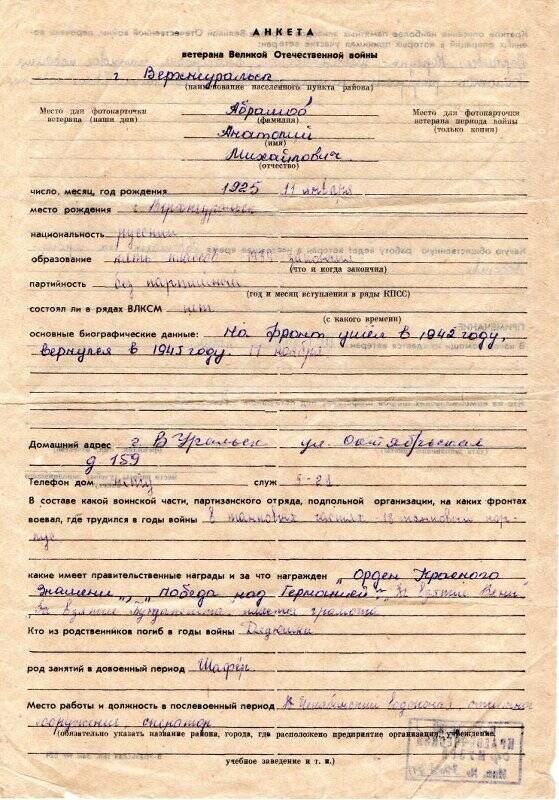 АНКЕТА
ветерана Великой Отечественной войны
г. Верхнеуральск
(наименование населенного пункта района)
Место для фотокарточки
ветерана (наши дни)
Абрамов
(фамилия)
Анатолий
(имя)
Михайлович
(отчество)
Место для фотокарточки
ветерана периода войны
(только копия)
число, месяц, год рождения 1925 11 января
место рождения г. Верхнеуральск
национальность русский
образование пять классов 1939
(что и когда закончил)
партийность без партийный
(год и месяц вступления в ряды КПСС)
состоял ли в рядах ВЛКСМ нет
(с какого времени)
основные биографические данные: На фронт ушёл в 1942 году,
вернулся в 1945 году. 17 ноября
Домашний адрес г. В Уральск ул. Октябрьская
д 159
Телефон дом нету служ 5-29
В составе какой воинской части, партизанского отряда, подпольной организации, на каких фронтах
воевал, где трудился в годы войны В танковых частях 18 танковый кор-
пус
какие имеет правительственные награды и за что награжден „Орден Красного
Знамени", „Победа над Германией", „За взятие Вены"
„За взятие Будапешта, имеется грамота
Кто из родственников погиб в годы войны Дядюшка
род занятий в довоенный период Шофёр
Место работы и должность в послевоенный период
сооружения, оператор
(обязательно указать название района, города, где расположено предприятие организация, учреждение
учебное заведение и т. п.)